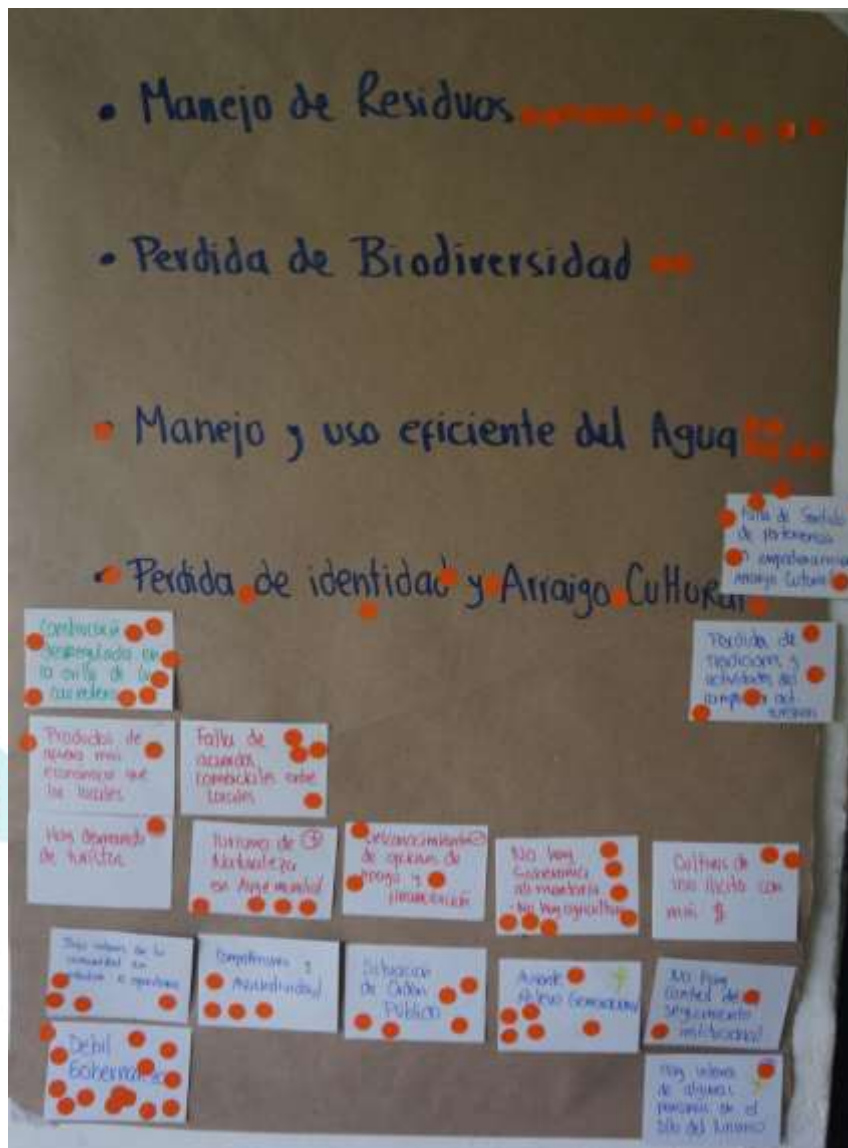 • Manejo de Residuos
• Perdida de Biodiversidad
• Manejo y uso eficiente del Agua
• Perdida de identidad y Arraigo Cultural
Falta de Sentido
de pertenencia
Cultural
Perdida de
tradiciones y
actividades del
Construcción
desregulada en
la orilla de la
carretera
Productos de
afuera mas
economicos que
los locales
Falta de
acuerdos
comerciales entre
Locales
Hay demanda
de turistas
Turismo de +
Naturaleza
en Auge mundial
Desconocimiento
de opciones de
apoyo y
financiación
No hay
Soberania
alimentaria
- No hay agricultura
Cultivos de
uso ilicito con
mas $
interes de la
comunidad en
Competencia y
Situacion
de Orden
Publico
Relevo Generacional
No hay
Control de
seguimiento
institucional
Debil
Gobernanza
Hay interes
de algunas
personas en el
del turismo